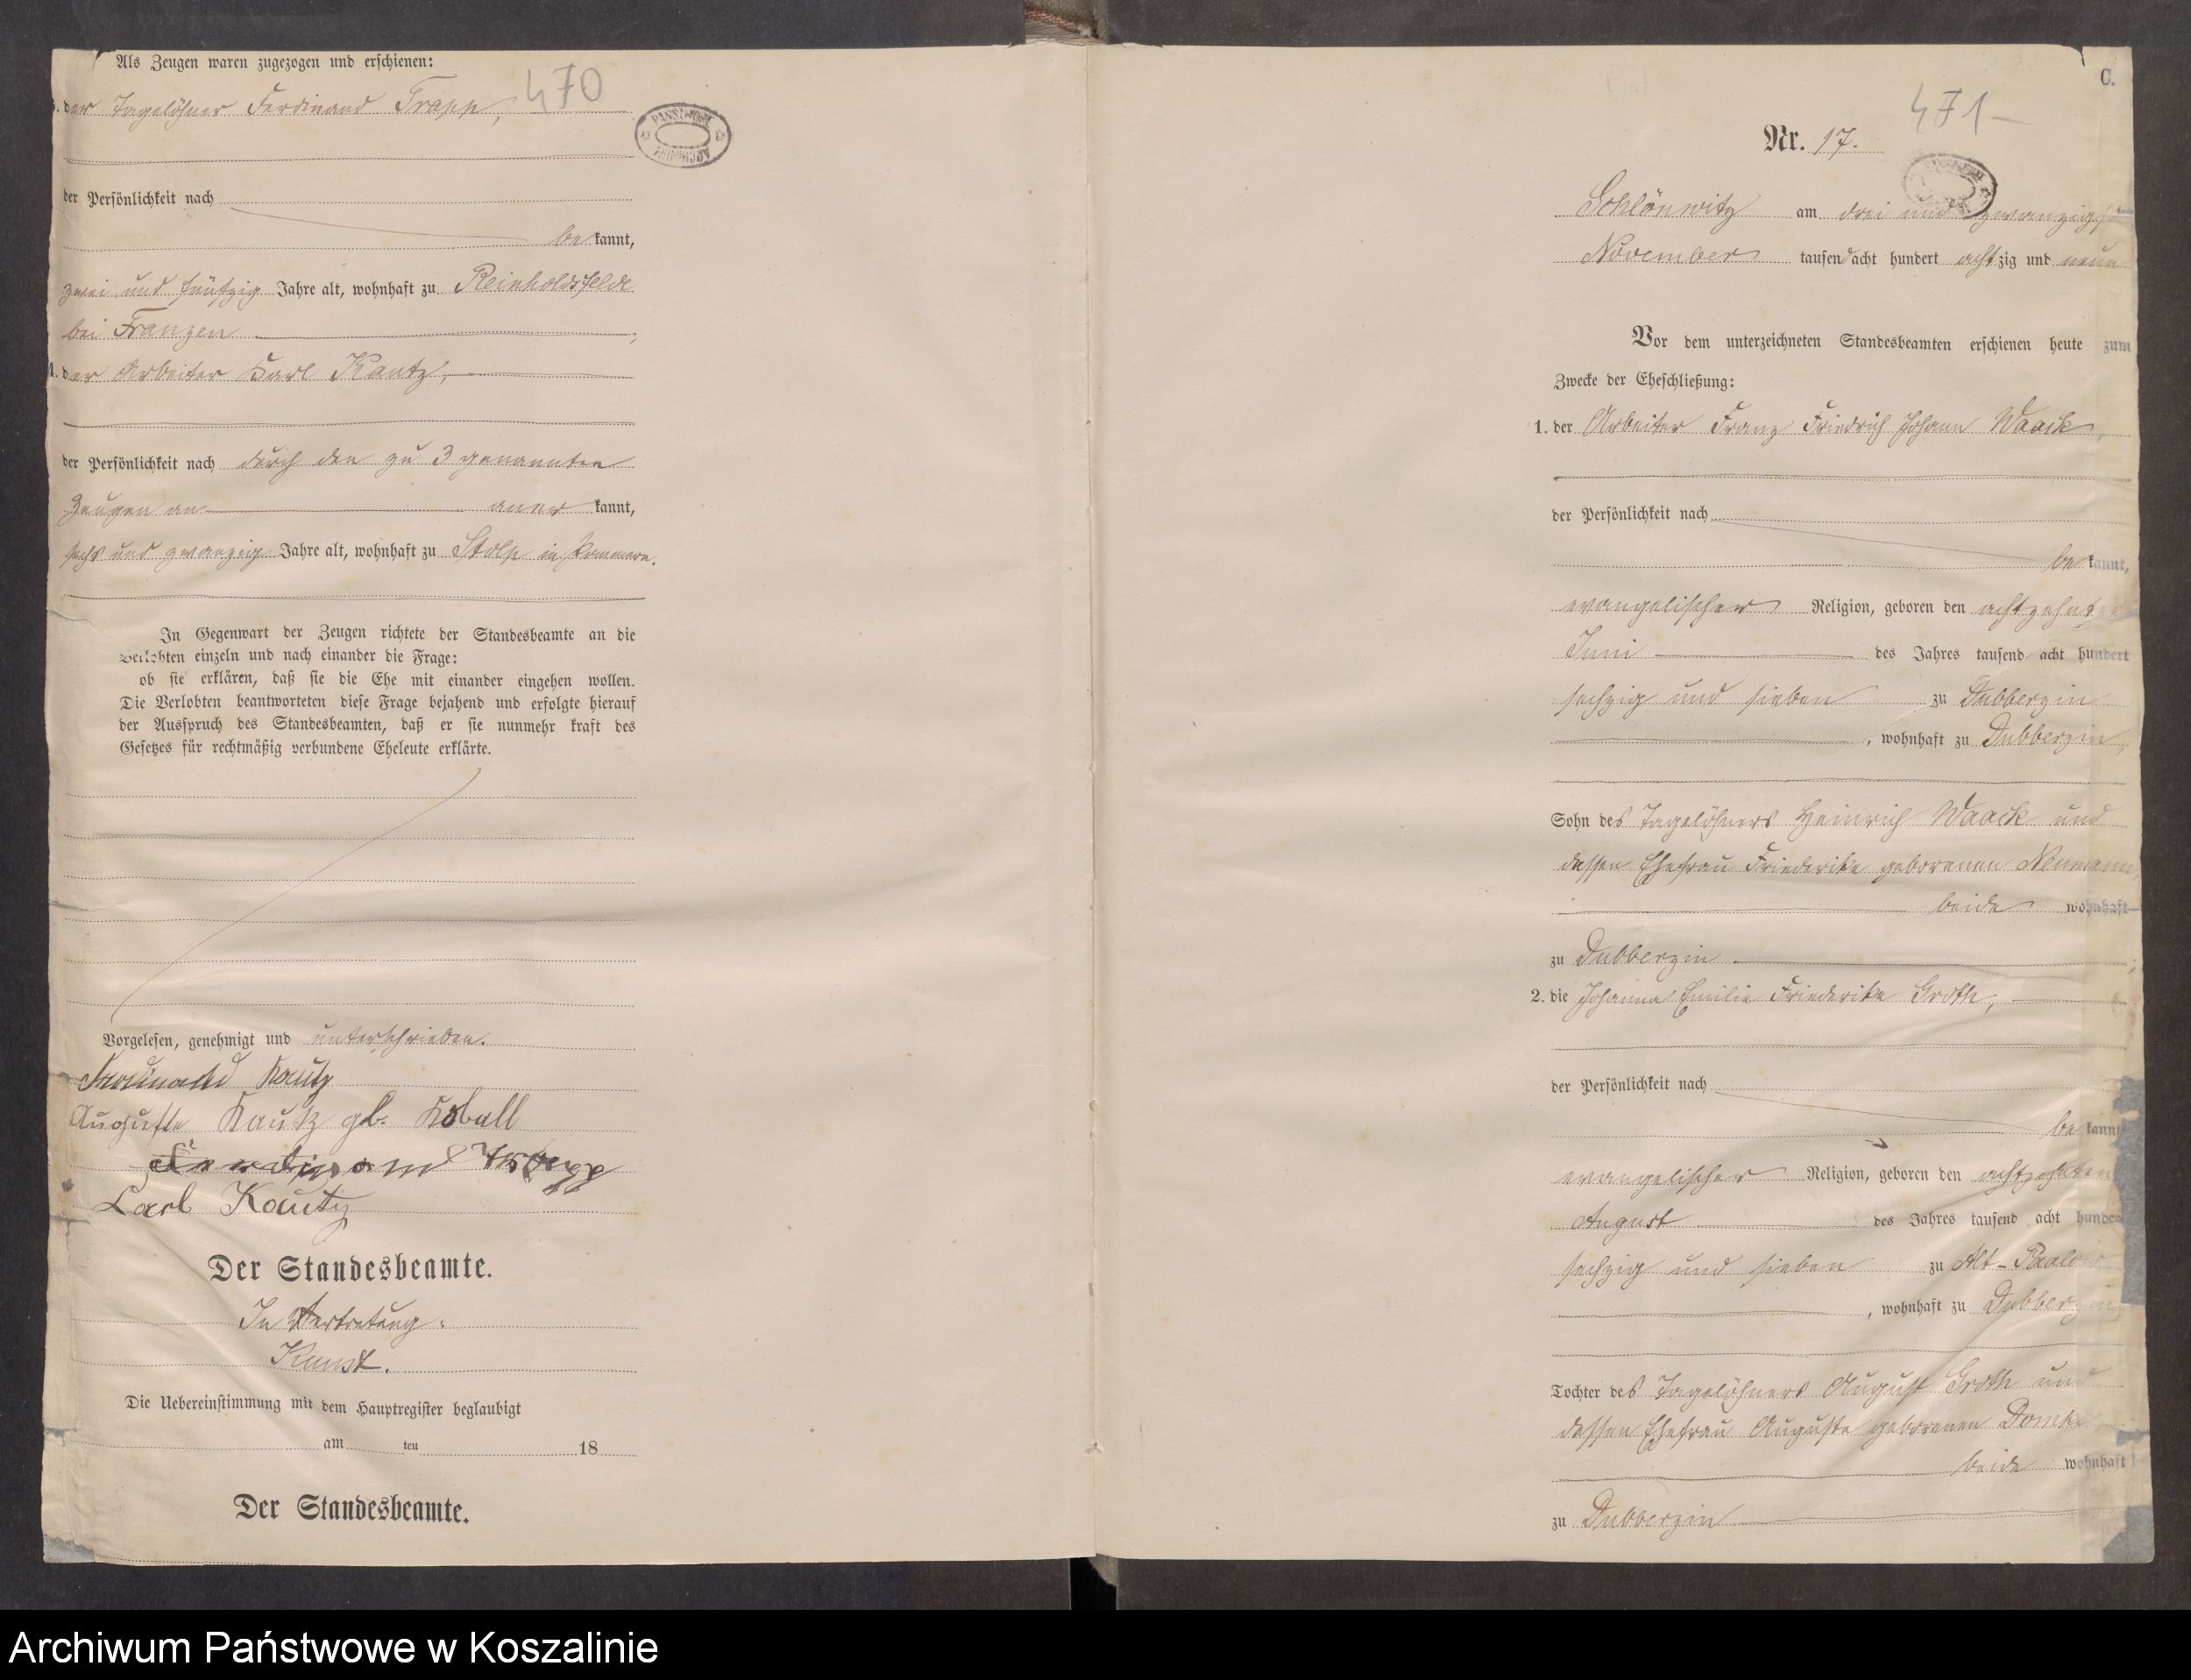 Als Zeugen waren zugezogen und erschienen:
470
3. der Tagelöhner Ferdinand Trapp,
PAŃSTWOWE ARCHIWUM
der Persönlichkeit nach
bekannt,
zwei und fünfzig Jahre alt, wohnhaft zu Reinholdsfelde
bei Franzen
4. der Arbeiter Karl Kautz,
der Persönlichkeit nach durch den zu 3 genannten
Zeugen an anerkannt,
sechs und zwanzig Jahre alt, wohnhaft zu Stolp in Pommern.
In Gegenwart der Zeugen richtete der Standesbeamte an die
Verlobten einzeln und nach einander die Frage:
ob sie erklären, daß sie die Ehe mit einander eingehen wollen.
Die Verlobten beantworteten diese Frage bejahend und erfolgte hierauf
der Ausspruch des Standesbeamten, daß er sie nunmehr kraft des
Gesetzes für rechtmäßig verbundene Eheleute erklärte.
Vorgelesen, genehmigt und unterschrieben.
Ferdinand Kautz
Auguste Kautz gb. Koball
Ferdinand Trapp
Carl Kautz
Der Standesbeamte.
In Vertretung.
Kunst.
Die Uebereinstimmung mit dem Hauptregister beglaubigt
am ten 18
Der Standesbeamte.
C.
471
Nr. 17.
Schlönwitz am drei und zwanzigsten
November tausend acht hundert achtzig und neun
Vor dem unterzeichneten Standesbeamten erschienen heute zum
Zwecke der Eheschließung:
1. der Arbeiter Franz Friedrich Johann Waack,
der Persönlichkeit nach
bekannt,
evangelischer Religion, geboren den achtzehnten
Juni des Jahres tausend acht hundert
sechzig und sieben zu Dubberzin
, wohnhaft zu Dubberzin,
Sohn des Tagelöhners Heinrich Waack und
dessen Ehefrau Friederike geborenen Neumann
beide wohnhaft
zu Dubberzin
2. die Johanna Emilie Friederike Groth,
der Persönlichkeit nach
bekannt,
evangelischer Religion, geboren den achtzehnten
August des Jahres tausend acht hundert
sechzig und sieben zu Alt-Paalow
, wohnhaft zu Dubberzin
Tochter des Tagelöhners August Groth und
dessen Ehefrau Auguste geborenen
beide wohnhaft
zu Dubberzin
Archiwum Państwowe w Koszalinie